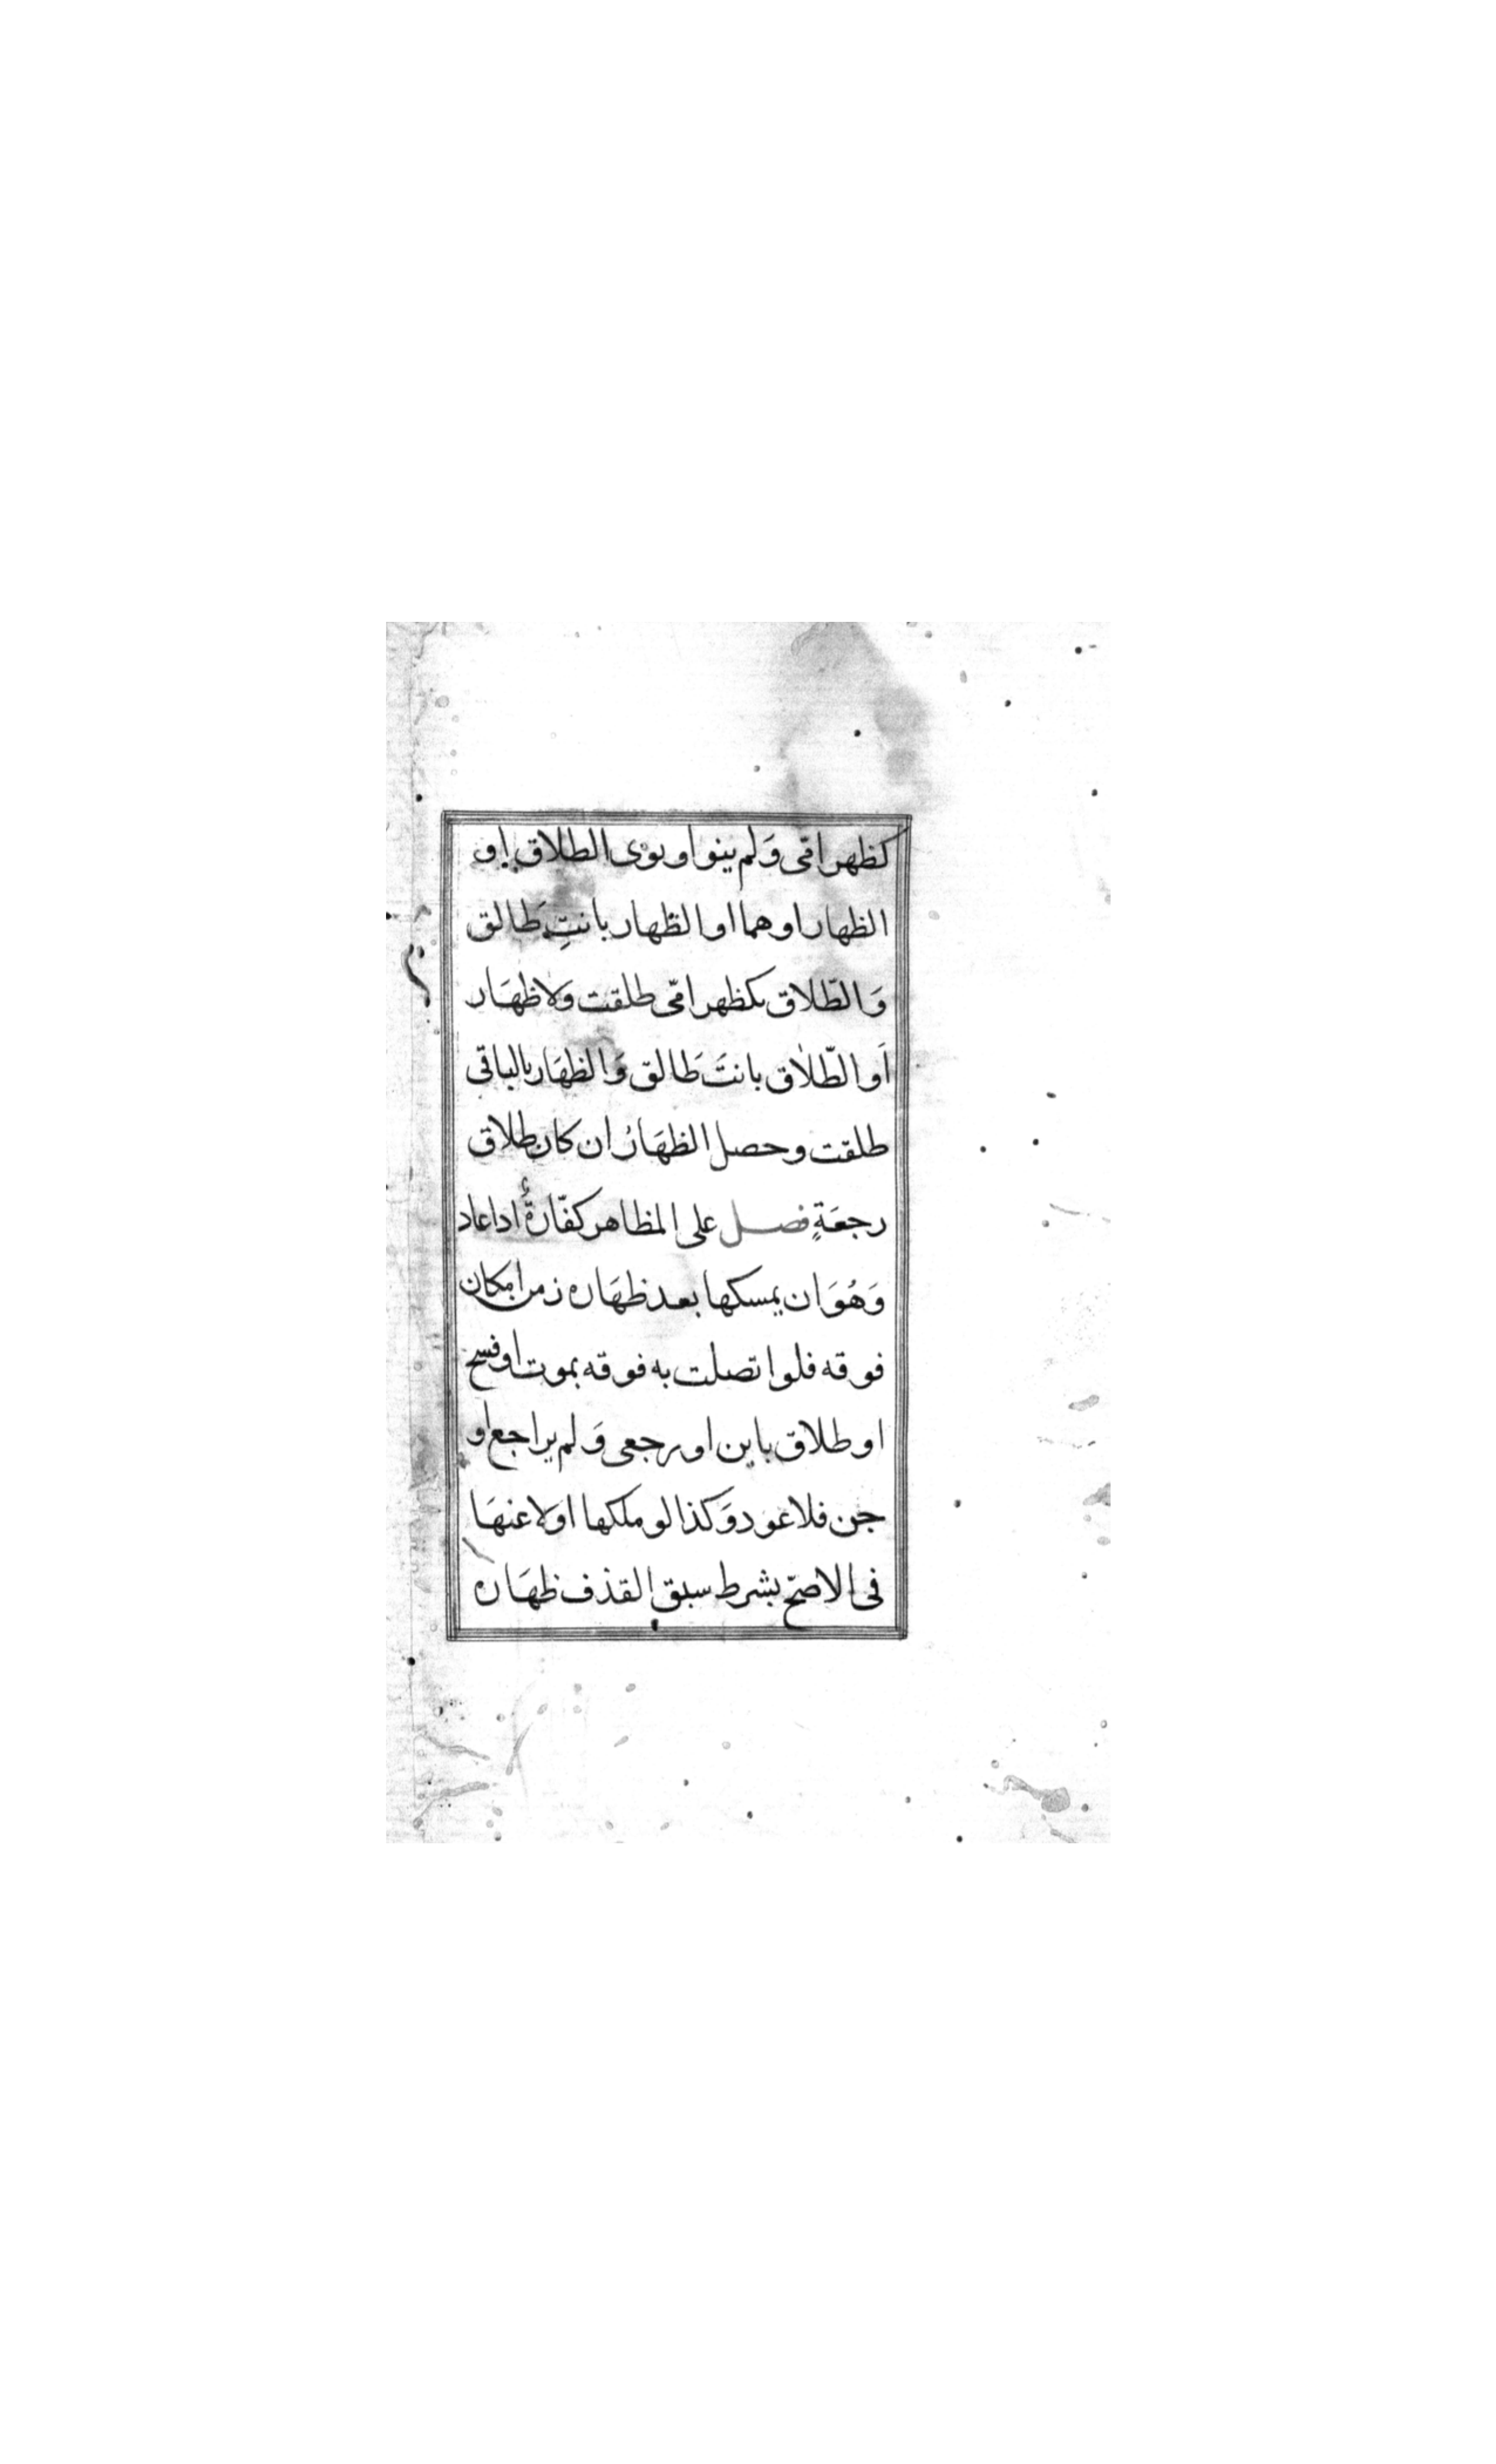 كظهر امّى وَلم ينو او نوى الطلاق او
الظهار او هما او الظهار بانتِ طَالق
وَالطّلاق بكظهر امّى طلقت ولاظهَار
اَو الطّلاق بانتَ طَالق وَالظهَار بالباقى
طلقت وحصل الظهَارُ ان كان طلاق
رجعَةٍ فصل على المظاهر كفّارةٌ اداعاد
وَهُوَ ان يمسكها بعد ظهَاره زمن امكان
فوقه فلو اتصلت به فوقه بموت او فسخ
او طلاق باين او رجعى وَلم يراجع او
جن فلا عود وَكذا لو ملكها او لاعنهَا
فى الاصحّ بشرط سبق القذف ظهَاره